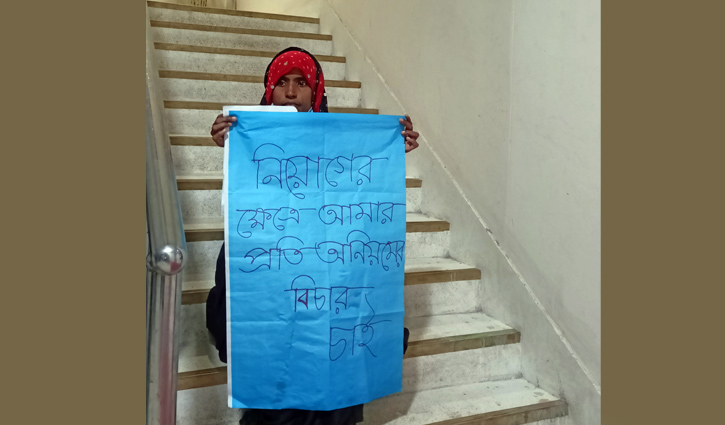 নিয়োগের
ক্ষেত্রে আমার
প্রতি অনিয়মের
বিচার
চাই